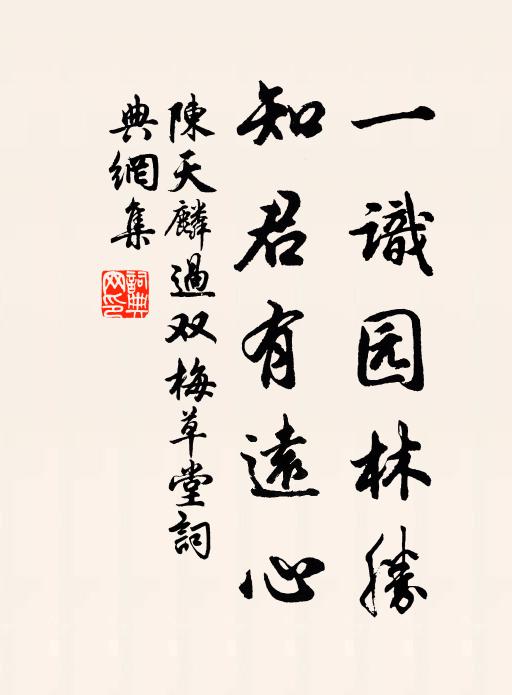 一識园林勝
知君有遠心
陳天麟過双梅草堂詞
典網集
詞典
网印